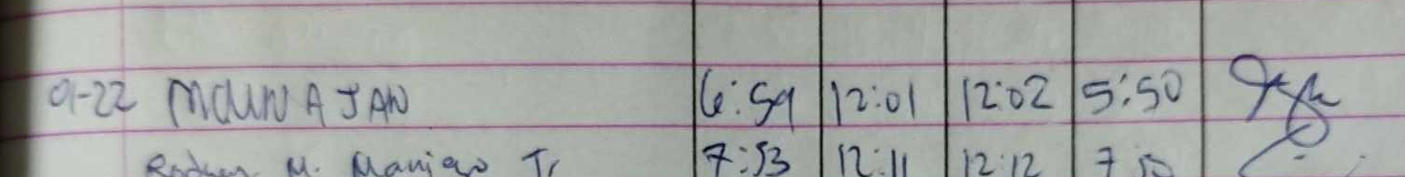 9-22 MCUN A JAN 6:59 12:01 12:02 5:50
M. Maniqo Jr 7:53 12:11 12:12